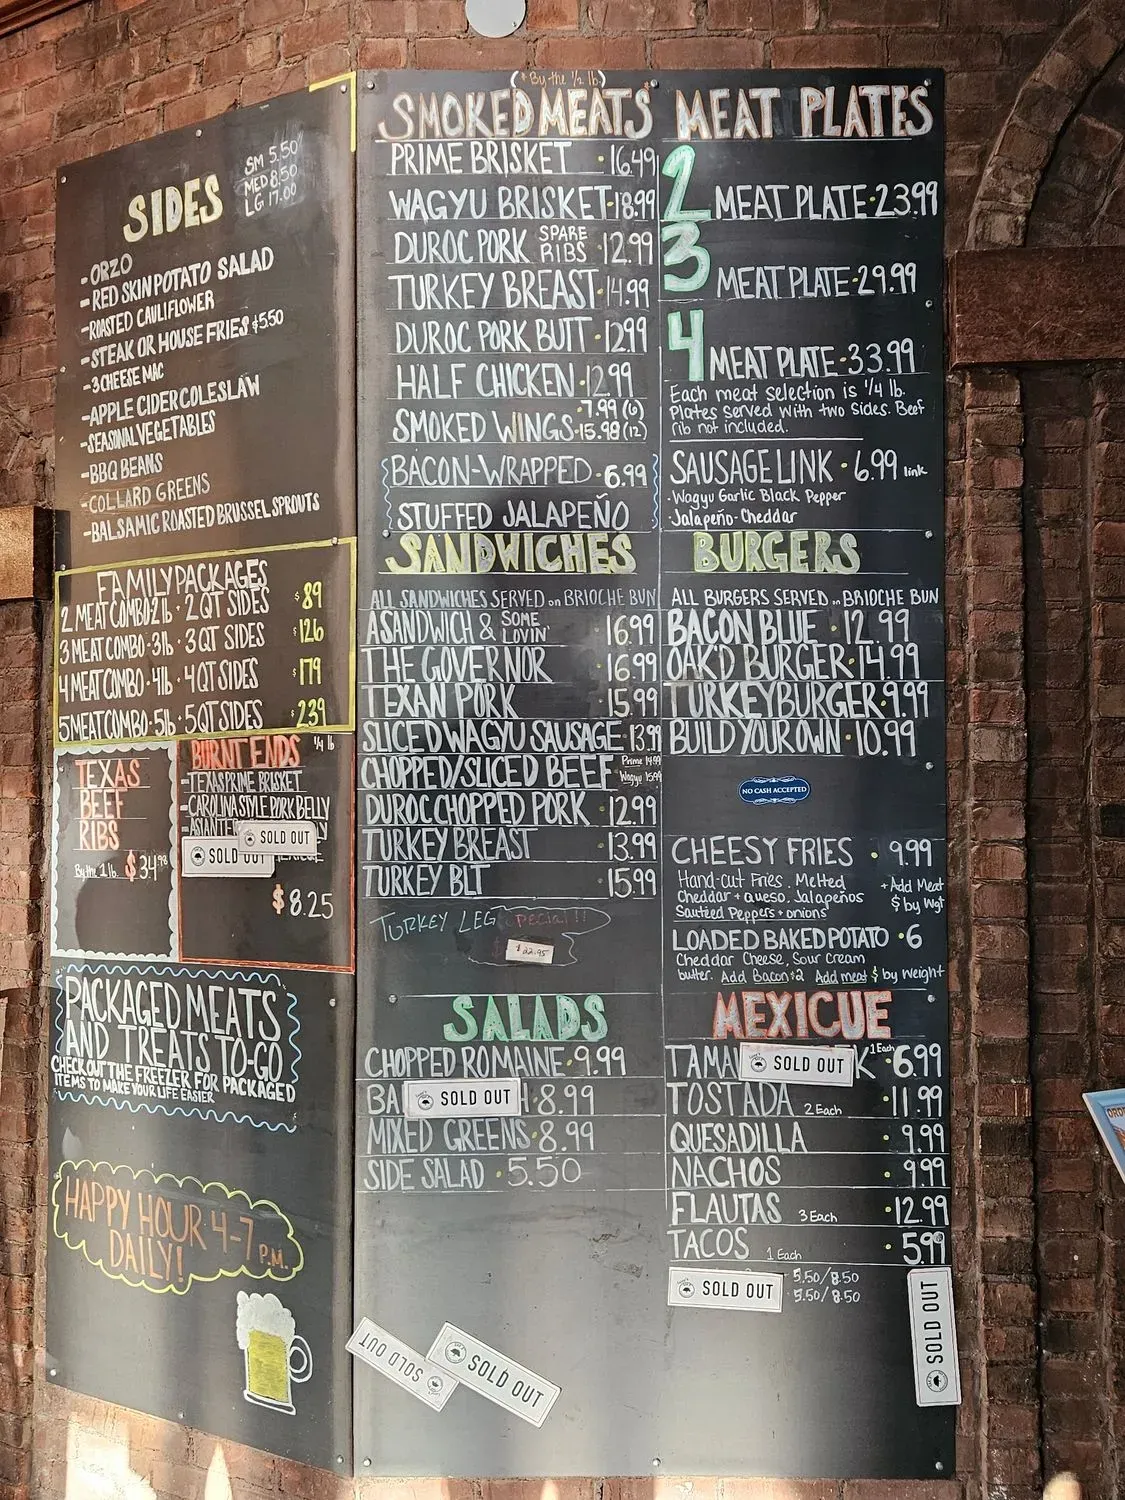 SIDES
SM 5.50
MED 8.50
LG 17.00
-ORZO
-RED SKIN POTATO SALAD
-ROASTED CAULIFLOWER
-STEAK OR HOUSE FRIES $5.50
-3 CHEESE MAC
-APPLE CIDER COLESLAW
-SEASONAL VEGETABLES
-BBQ BEANS
-COLLARD GREENS
-BALSAMIC ROASTED BRUSSEL SPROUTS
FAMILY PACKAGES
2 MEAT COMBO·2lb · 2 QT SIDES $89
3 MEAT COMBO·3lb · 3 QT SIDES $126
4 MEAT COMBO·4lb · 4 QT SIDES $179
5 MEAT COMBO·5lb · 5 QT SIDES $239
TEXAS
BEEF
RIBS
By the 1 lb. $34.98
BURNT ENDS 1/4 lb
-TEXAS PRIME BRISKET
-CAROLINA STYLE PORK BELLY
SOLD OUT
SOLD OUT
$8.25
PACKAGED MEATS
AND TREATS TO-GO
CHECK OUT THE FREEZER FOR PACKAGED
ITEMS TO MAKE YOUR LIFE EASIER
HAPPY HOUR 4-7 P.M.
DAILY!
(* By the 1/2 lb.)
SMOKED MEATS
PRIME BRISKET · 16.49
WAGYU BRISKET · 18.99
DUROC PORK SPARE RIBS · 12.99
TURKEY BREAST · 14.99
DUROC PORK BUTT · 12.99
HALF CHICKEN · 12.99
SMOKED WINGS · 7.99 (6)
· 15.98 (12)
BACON-WRAPPED · 6.99
STUFFED JALAPEÑO
SANDWICHES
ALL SANDWICHES SERVED on BRIOCHE BUN
A SANDWICH & SOME LOVIN' · 16.99
THE GOVERNOR · 16.99
TEXAN PORK · 15.99
SLICED WAGYU SAUSAGE · 13.99
CHOPPED/SLICED BEEF Prime 14.99
Wagyu 15.99
DUROC CHOPPED PORK · 12.99
TURKEY BREAST · 13.99
TURKEY BLT · 15.99
TURKEY LEG Special!!
$22.95
SALADS
CHOPPED ROMAINE · 9.99
BA SOLD OUT H · 8.99
MIXED GREENS · 8.99
SIDE SALAD · 5.50
SOLD OUT
SOLD OUT
MEAT PLATES
2 MEAT PLATE · 23.99
3 MEAT PLATE · 29.99
4 MEAT PLATE · 33.99
Each meat selection is 1/4 lb.
Plates served with two sides. Beef
rib not included.
SAUSAGE LINK · 6.99 link
·Wagyu Garlic Black Pepper
Jalapeño-Cheddar
BURGERS
ALL BURGERS SERVED on BRIOCHE BUN
BACON BLUE · 12.99
OAK'D BURGER · 14.99
TURKEY BURGER · 9.99
BUILD YOUR OWN · 10.99
NO CASH ACCEPTED
CHEESY FRIES · 9.99
Hand-cut Fries. Melted
Cheddar + queso, Jalapeños
Sautéed Peppers + onions
+ Add Meat
$ by Wgt
LOADED BAKED POTATO · 6
Cheddar Cheese, Sour Cream
butter. Add Bacon $2 Add meat $ by weight
MEXICUE
TAMA SOLD OUT K 1 Each · 6.99
TOSTADA 2 Each · 11.99
QUESADILLA · 9.99
NACHOS · 9.99
FLAUTAS 3 Each · 12.99
TACOS 1 Each · 5.99
SOLD OUT 5.50/8.50
5.50/8.50
SOLD OUT